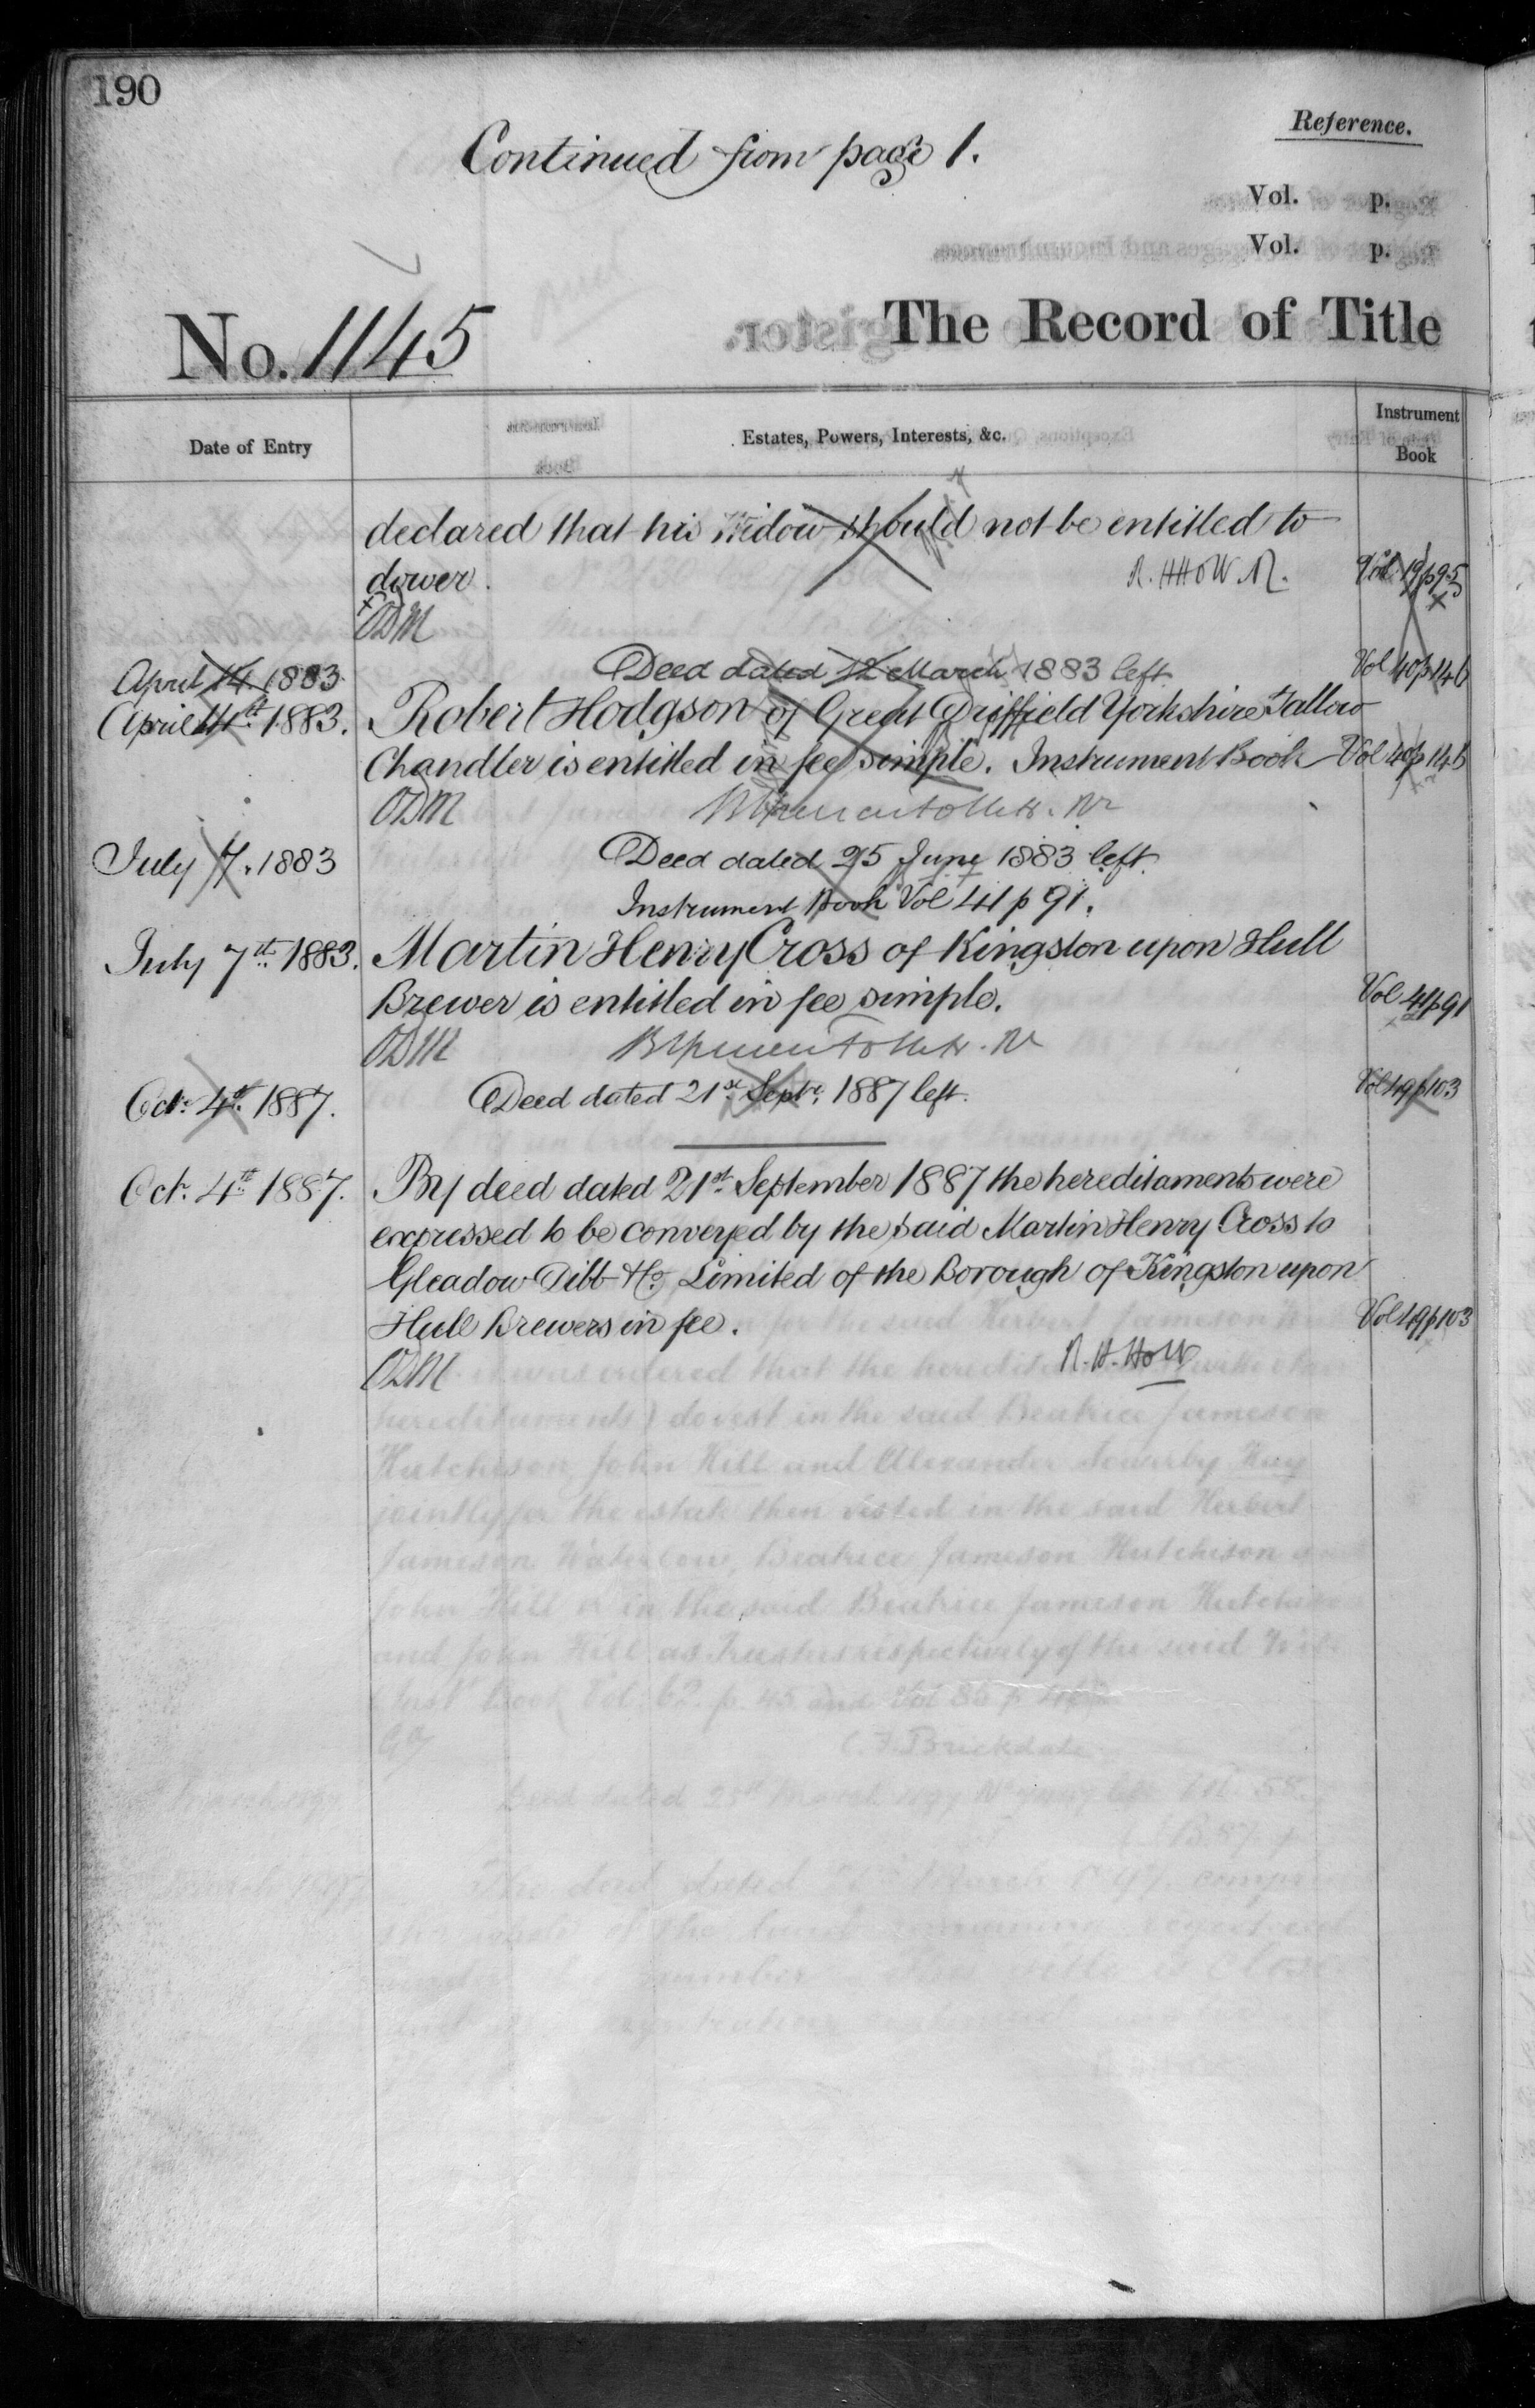 190
Continued from page 1.
Reference.
Vol. p.
Vol. p.
No. 1145
The Record of Title
Date of Entry
Estates, Powers, Interests, &c.
Instrument Book
declared that his widow should not be entitled to
dower. R. H HOW. R. Vol 19 p 95
ODM
April 14. 1883 Deed dated 12 March 1883 left Vol 40 p 146
April 14th 1883. Robert Hodgson of Great Driffield Yorkshire Tallow
Chandler is entitled in fee simple. Instrument Book Vol 40 p 146
ODM
July 7. 1883 Deed dated 25 June 1883 left.
Instrument Book Vol 41 p 91.
July 7th 1883. Martin Henry Cross of Kingston upon Hull
Brewer is entitled in fee simple. Vol 41 p 91
ODM
Oct. 4th 1887. Deed dated 21st Septr. 1887 left. Vol 49 p 103
Oct. 4th 1887. By deed dated 21st September 1887 the hereditaments were
expressed to be conveyed by the said Martin Henry Cross to
Gleadow Dibb & Co. Limited of the Borough of Kingston upon
Hull Brewers in fee. Vol 49 p 103
ODM R. H. HOW